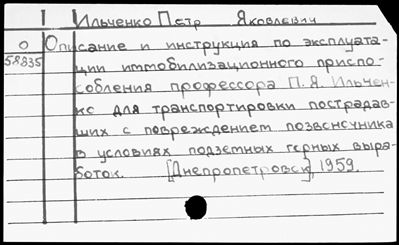 Ильченко Петр Яковлевич
О
58835
Описание и инструкция по эксплуата-
ции иммобилизационного приспо-
собления профессора П. Я. Ильчен-
ко для транспортировки пострадав-
ших с повреждением позвоночника
в условиях подземных горных выра-
боток. [Днепропетровск], 1959.